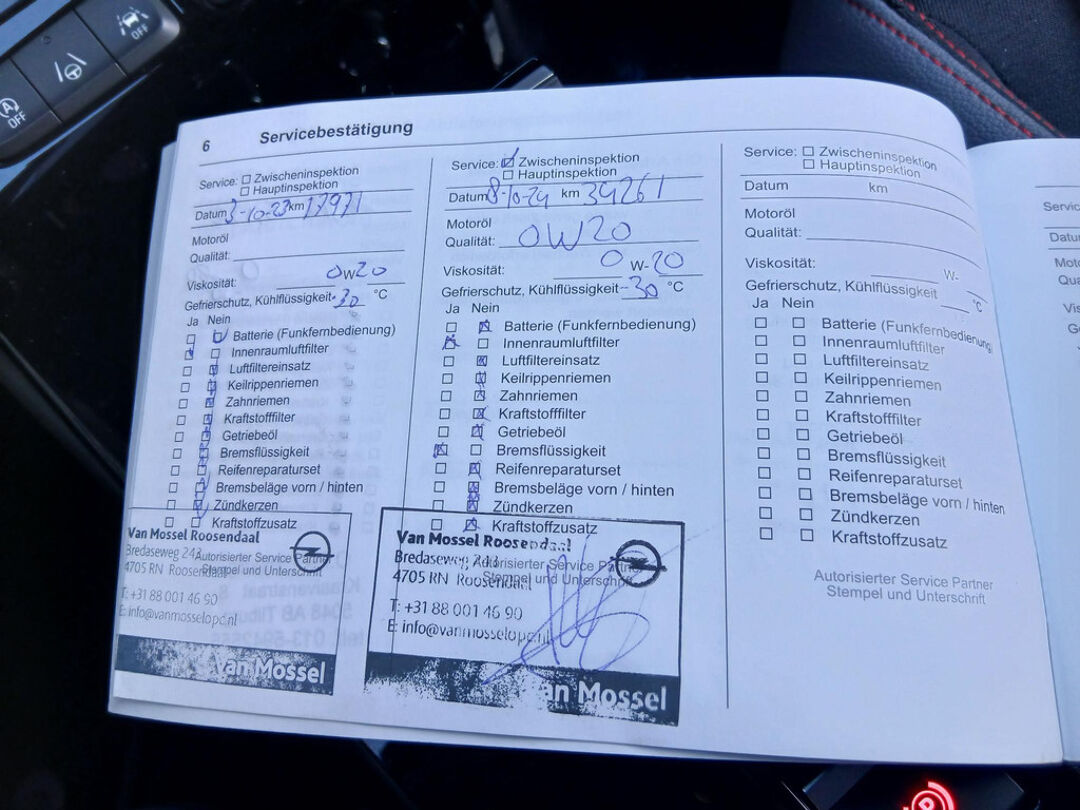 OFF
OFF
6 Servicebestätigung
Service: Zwischeninspektion
Hauptinspektion
Datum 3-10-23 km 17971
Motoröl
Qualität:
Viskosität: 0W20
Gefrierschutz, Kühlflüssigkeit -30 °C
Ja Nein
Batterie (Funkfernbedienung)
Innenraumluftfilter
Luftfiltereinsatz
Keilrippenriemen
Zahnriemen
Kraftstofffilter
Getriebeöl
Bremsflüssigkeit
Reifenreparaturset
Bremsbeläge vorn / hinten
Zündkerzen
Kraftstoffzusatz
Autorisierter Service Partner
Stempel und Unterschrift
Van Mossel Roosendaal
Bredaseweg 243
4705 RN Roosendaal
T: +31 88 001 46 90
E: info@vanmosselopel.nl
Van Mossel
Service: Zwischeninspektion
Hauptinspektion
Datum 8-10-24 km 34261
Motoröl
Qualität: 0W20
Viskosität: 0 W-20
Gefrierschutz, Kühlflüssigkeit -30 °C
Ja Nein
Batterie (Funkfernbedienung)
Innenraumluftfilter
Luftfiltereinsatz
Keilrippenriemen
Zahnriemen
Kraftstofffilter
Getriebeöl
Bremsflüssigkeit
Reifenreparaturset
Bremsbeläge vorn / hinten
Zündkerzen
Kraftstoffzusatz
Autorisierter Service Partner
Stempel und Unterschrift
Van Mossel Roosendaal
Bredaseweg 243
4705 RN Roosendaal
T: +31 88 001 46 90
E: info@vanmosselopel.nl
Van Mossel
Service: Zwischeninspektion
Hauptinspektion
Datum km
Motoröl
Qualität:
Viskosität: W-
Gefrierschutz, Kühlflüssigkeit °C
Ja Nein
Batterie (Funkfernbedienung)
Innenraumluftfilter
Luftfiltereinsatz
Keilrippenriemen
Zahnriemen
Kraftstofffilter
Getriebeöl
Bremsflüssigkeit
Reifenreparaturset
Bremsbeläge vorn / hinten
Zündkerzen
Kraftstoffzusatz
Autorisierter Service Partner
Stempel und Unterschrift